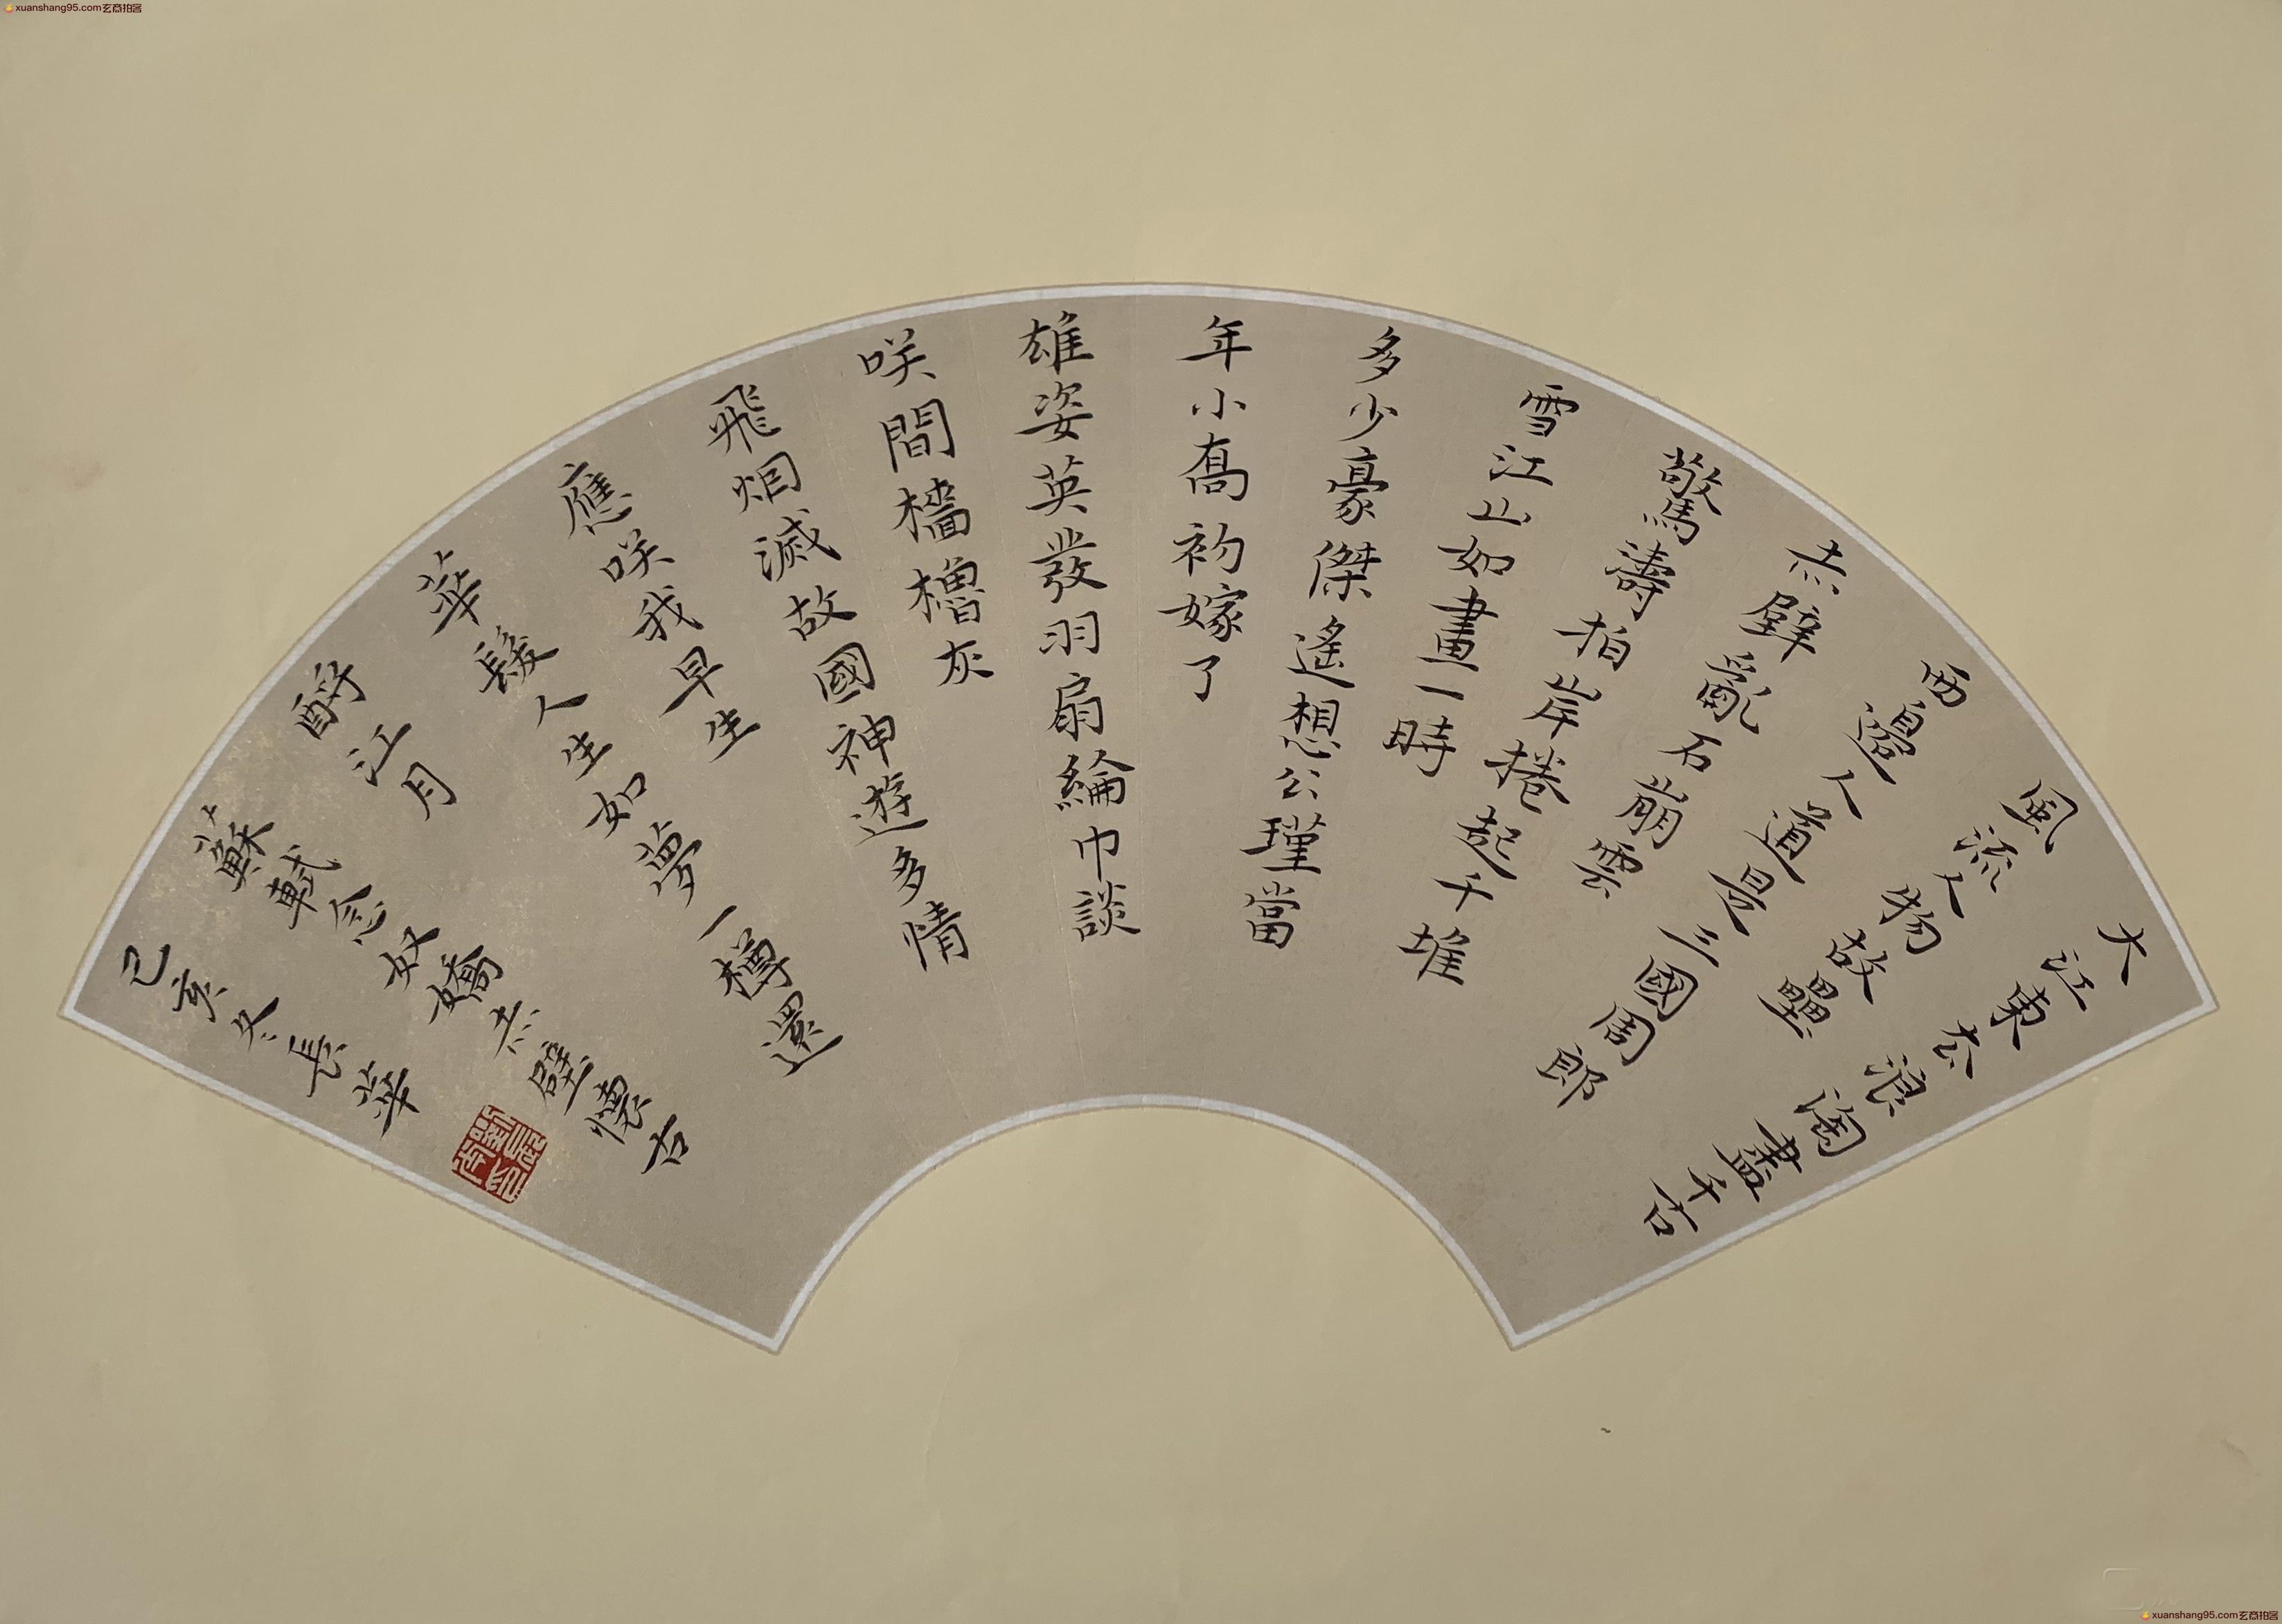 xuanshang95.com玄商拍客
大江東去浪淘盡千古
風流人物故壘
西邊人道是三國周郎
赤壁亂石崩雲
驚濤拍岸捲起千堆
雪江山如畫一時
多少豪傑遙想公瑾當
年小喬初嫁了
雄姿英發羽扇綸巾談
咲間檣櫓灰
飛烟滅故國神遊多情
應咲我早生
華髮人生如夢一樽還
酹江月
蘇軾念奴嬌赤壁懷古
己亥冬長華
xuanshang95.com玄商拍客